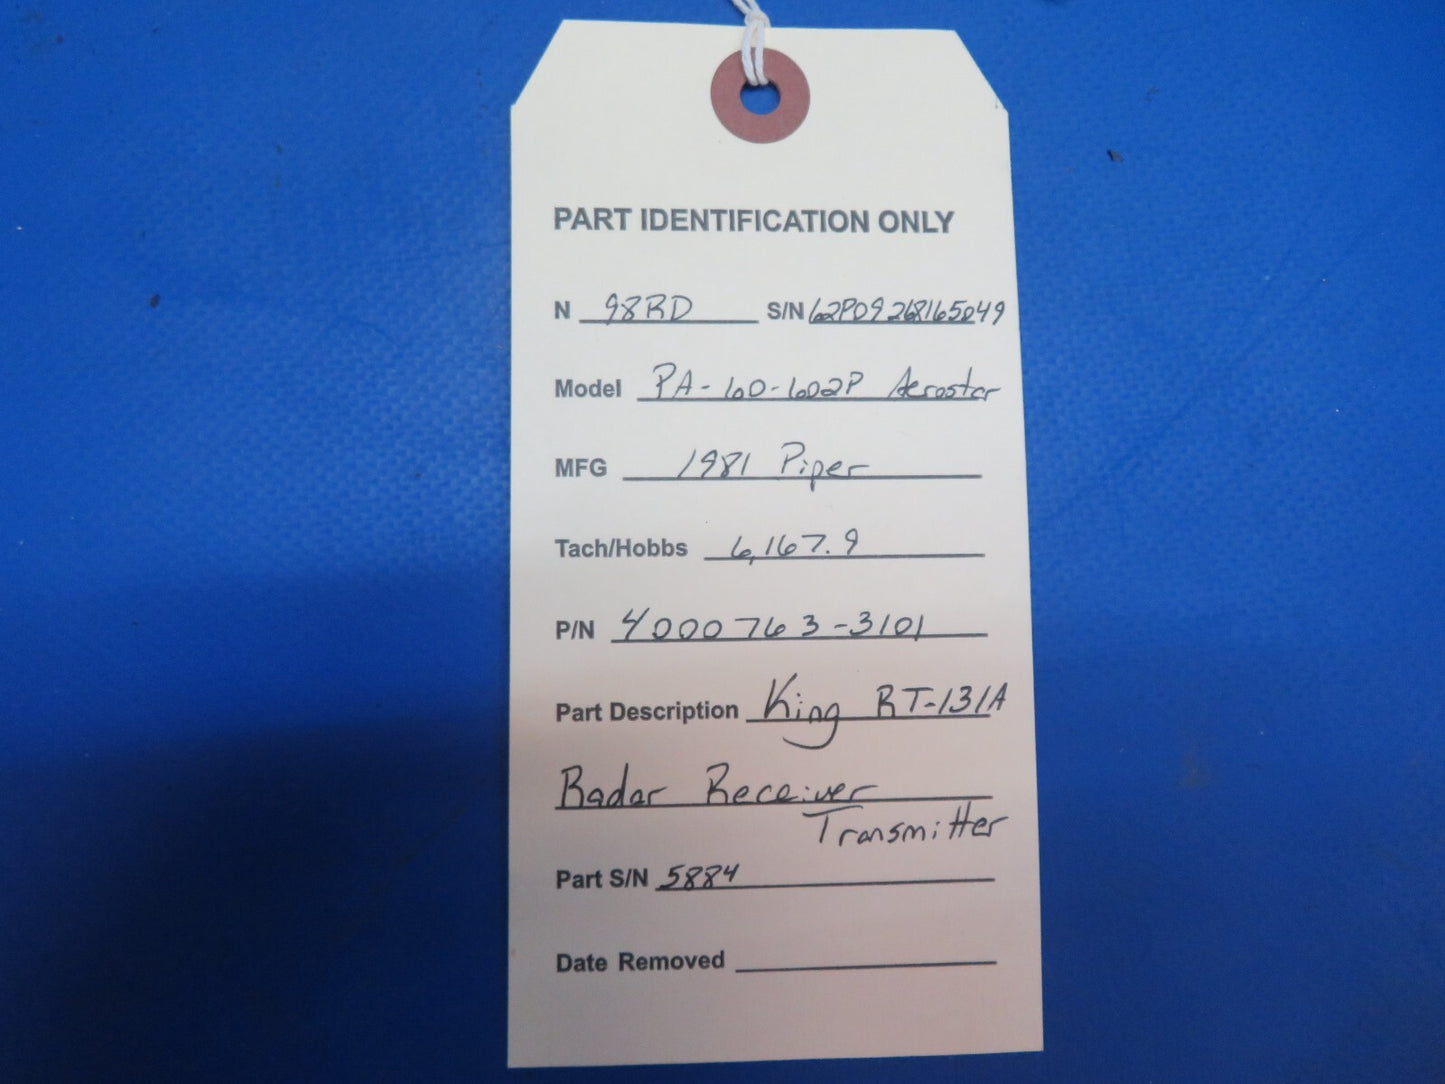 PART IDENTIFICATION ONLY
N 98RD S/N 62P09268165049
Model PA-60-602P Aerostar
MFG 1981 Piper
Tach/Hobbs 6,167.9
P/N 4000763-3101
Part Description King RT-131A
Radar Receiver
Transmitter
Part S/N 5884
Date Removed